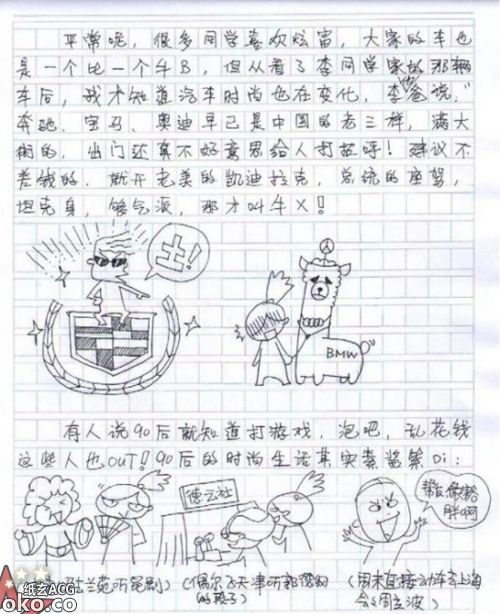 平常呢，很多同学喜欢炫富，大家的车也
是一个比一个牛B，但从看了李同学家的那辆
车后，我才知道汽车时尚也在变化，李爸说，"
奔驰、宝马、奥迪早已是中国的老三样，满大
街的，出门还真不好意思给人打招呼！建议不
差钱的，就开老美的凯迪拉克，总统的座驾，
坦克身，够气派，那才叫牛X！
土！
BMW
有人说90后就知道打游戏，泡吧，乱花钱
这些人也OUT！90后的时尚生活其实素酱紫Di：
德云社
胖啊
(偶尔飞天津听郭德纲
的段子)
(周末直接动车去上海
会周立波)
纸玄ACG
oko.co